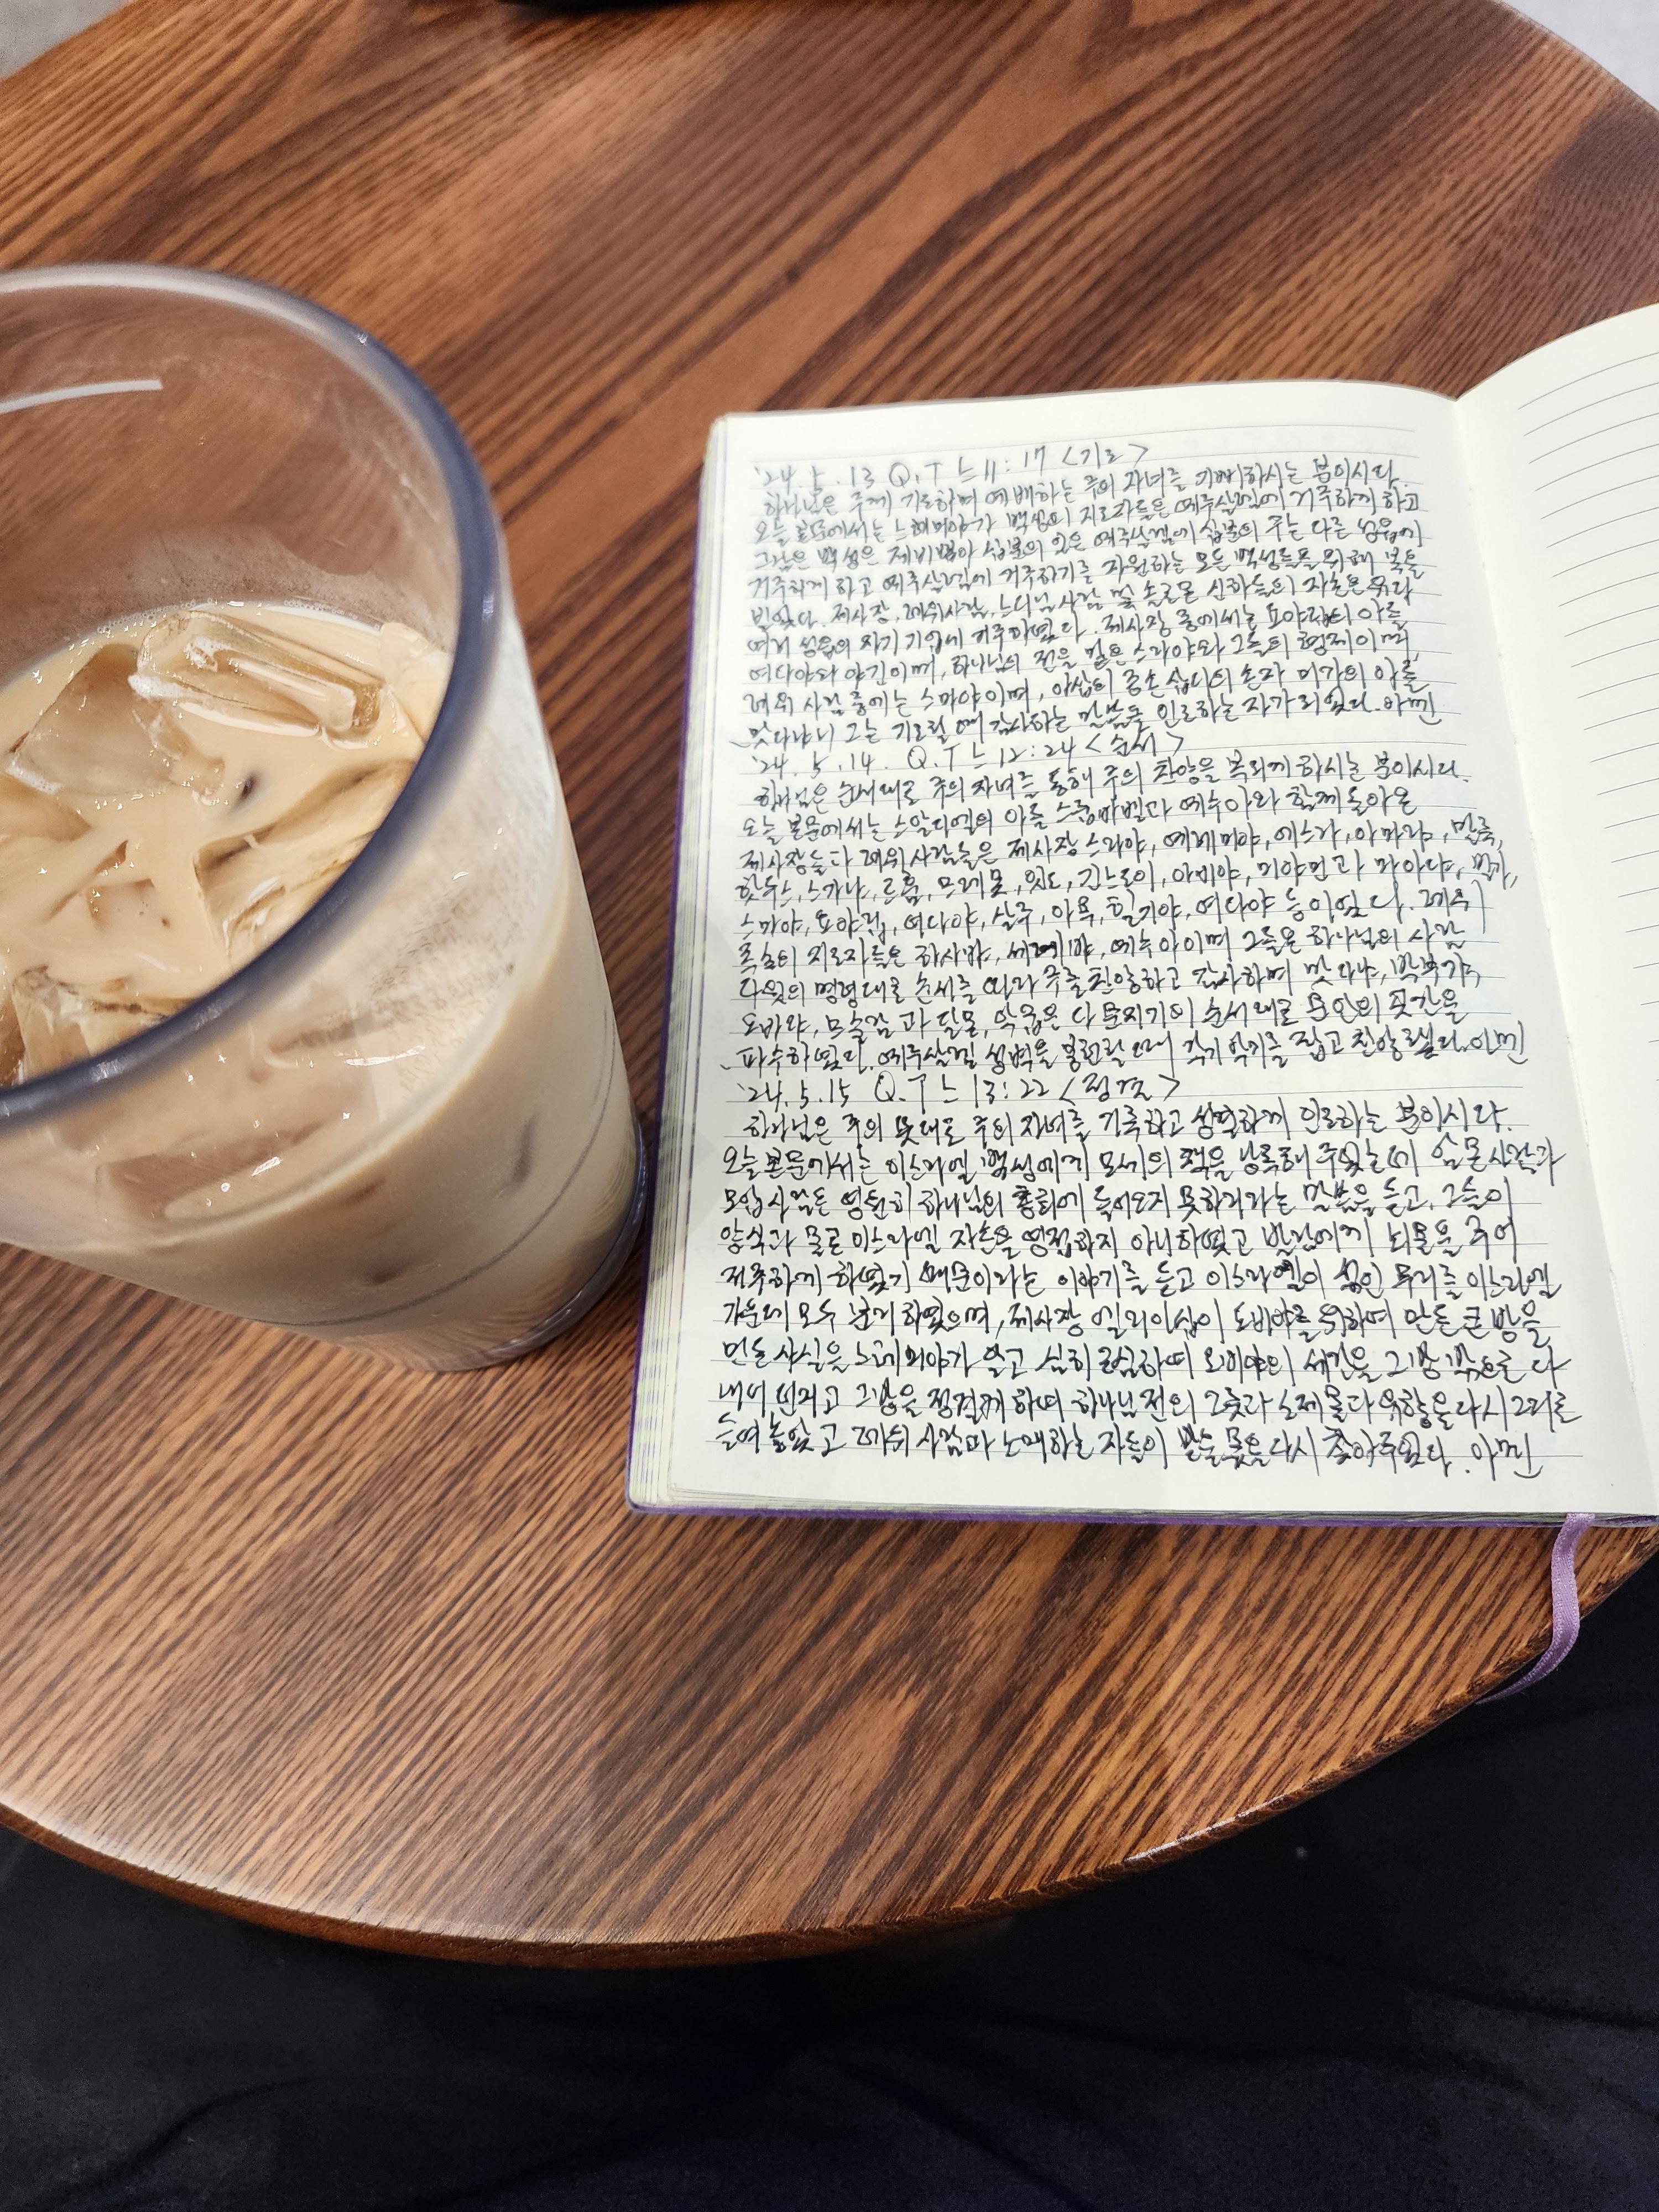 '24.5.13 Q.T 느11:17 <기도>
하나님은 주께 기도하며 예배하는 주의 자녀를 기뻐하시는 분이시다.
오늘 본문에서는 느헤미야가 백성의 지도자들은 예루살렘에 거주하게 하고
그남은 백성은 제비뽑아 십분의 일은 예루살렘에 십분의 구는 다른 성읍에
거주하게 하고 예루살렘에 거주하기를 자원하는 모든 백성들을 위해 복을
빌었다. 제사장, 레위사람, 느디님 사람 및 솔로몬 신하들의 자손은 유다
여러 성읍의 자기 기업에 거주하였다. 제사장 중에서는 요야립의 아들
여다야와 야긴이며, 하나님의 전을 맡은 스라야와 그들의 형제이며,
레위 사람 중에는 스마야이며, 아삽의 증손 삽디의 손자 미가의 아들
맛다냐니 그는 기도할 때 감사하는 말씀을 인도하는 자가 되었다. 아멘
'24.5.14. Q.T 느12:24 <순서>
하나님은 순서대로 주의 자녀를 통해 주의 찬양을 높이게 하시는 분이시다.
오늘 본문에서는 스알디엘의 아들 스룹바벨과 예수아와 함께 돌아온
제사장들과 레위사람들은 제사장 스라야, 예레미야, 에스라, 아마랴, 말룩,
핫두스, 스가냐, 르훔, 므레못, 잇도, 긴느도이, 아비야, 미야민과 마아댜, 빌가,
스마야, 요야립, 여다야, 살루, 아목, 힐기야, 여다야 등이었다. 레위
족속의 지도자들은 하사뱌, 세레뱌, 예수아이며 그들은 하나님의 사람
다윗의 명령대로 순서를 따라 주를 찬양하고 감사하며 맛다냐, 박부갸,
오바댜, 므술람과 달몬, 악굽은 다 문지기의 순서대로 문안의 곳간을
파수하였다. 예루살렘 성벽을 봉헌할 때 각기 악기를 잡고 찬양하였다. 아멘
'24.5.15 Q.T 느13:22 <정결>
하나님은 주의 뜻대로 주의 자녀를 거룩하고 성결하게 인도하는 분이시다.
오늘 본문에서는 이스라엘 백성에게 모세의 책을 낭독해 주었는데 암몬사람과
모압사람은 영원히 하나님의 총회에 들어오지 못하리라는 말씀을 듣고, 그들이
양식과 물로 이스라엘 자손을 영접하지 아니하였고 발람에게 뇌물을 주어
저주하게 하였기 때문이라는 이야기를 듣고 이스라엘이 섞인 무리를 이스라엘
가운데 모두 분리하였으며, 제사장 엘리아십이 도비야를 위하여 만든 큰 방을
만든 사실을 느헤미야가 알고 심히 근심하여 도비야의 세간을 그 방 밖으로 다
내어 던지고 그방을 정결하게 하여 하나님 전의 그릇과 소제물과 유향을 다시 그리로
들여놓았고 레위 사람과 노래하는 자들이 받을 몫을 다시 찾아주었다. 아멘